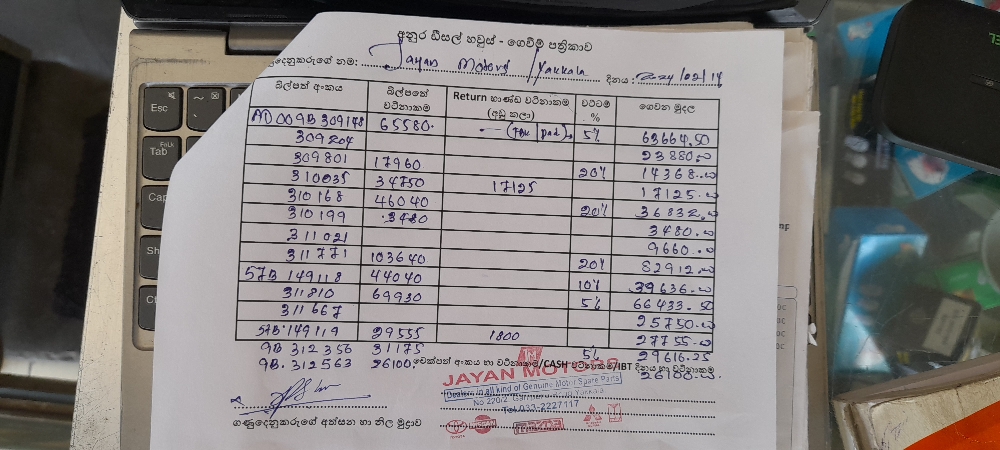 අනුර ඩීසල් හවුස් - ගෙවීම් පත්‍රිකාව
දෙනුකරුගේ නම: Jayan Motors / Yakkala දිනය:
බිල්පත් අංකය බිල්පතේ වටිනාකම Return භාණ්ඩ වටිනාකම (අඩු කලා) වට්ටම් % ගෙවන මුදල
009B 309148 65580. 5% 63664.50
309204 23880.00
309801 17960 20% 14368.00
310035 34750 17125 17125.00
310168 46040 20% 36832.00
310199 3480 3480.00
311021 9660.00
311771 103640 20% 82912.00
57B 149118 44040 10% 39636.00
311810 69930 5% 66433.50
311667 25750.00
57B 149119 29555 1800 27755.00
9B 312356 31175 5% 29616.25
9B. 312563 26100. චෙක්පත් අංකය හා වටිනාකම/CASH වටිනාකම/IBT දිනය හා වටිනාකම
26100.00
JAYAN MOTORS
Dealers in all kind of Genuine Motor Spare Parts
No 220/2 Yakkala
Tel.033-2227117
TOYOTA NISSAN mazda
ගණුදෙනුකරුගේ අත්සන හා නිල මුද්‍රාව
Esc
Tab
Cap
Sh
Ct